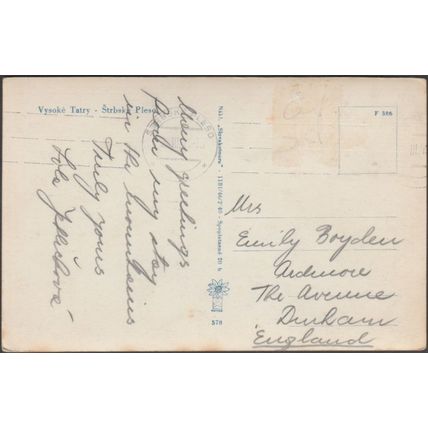 Vysoké Tatry - Štrbské Pleso
Many greetings
from my stay
in the mountains
Truly yours
Nákl. „Slovakotour“ -
578
F 586
Mrs
Emily Boyden
Ardmore
The Avenue
Durham
England